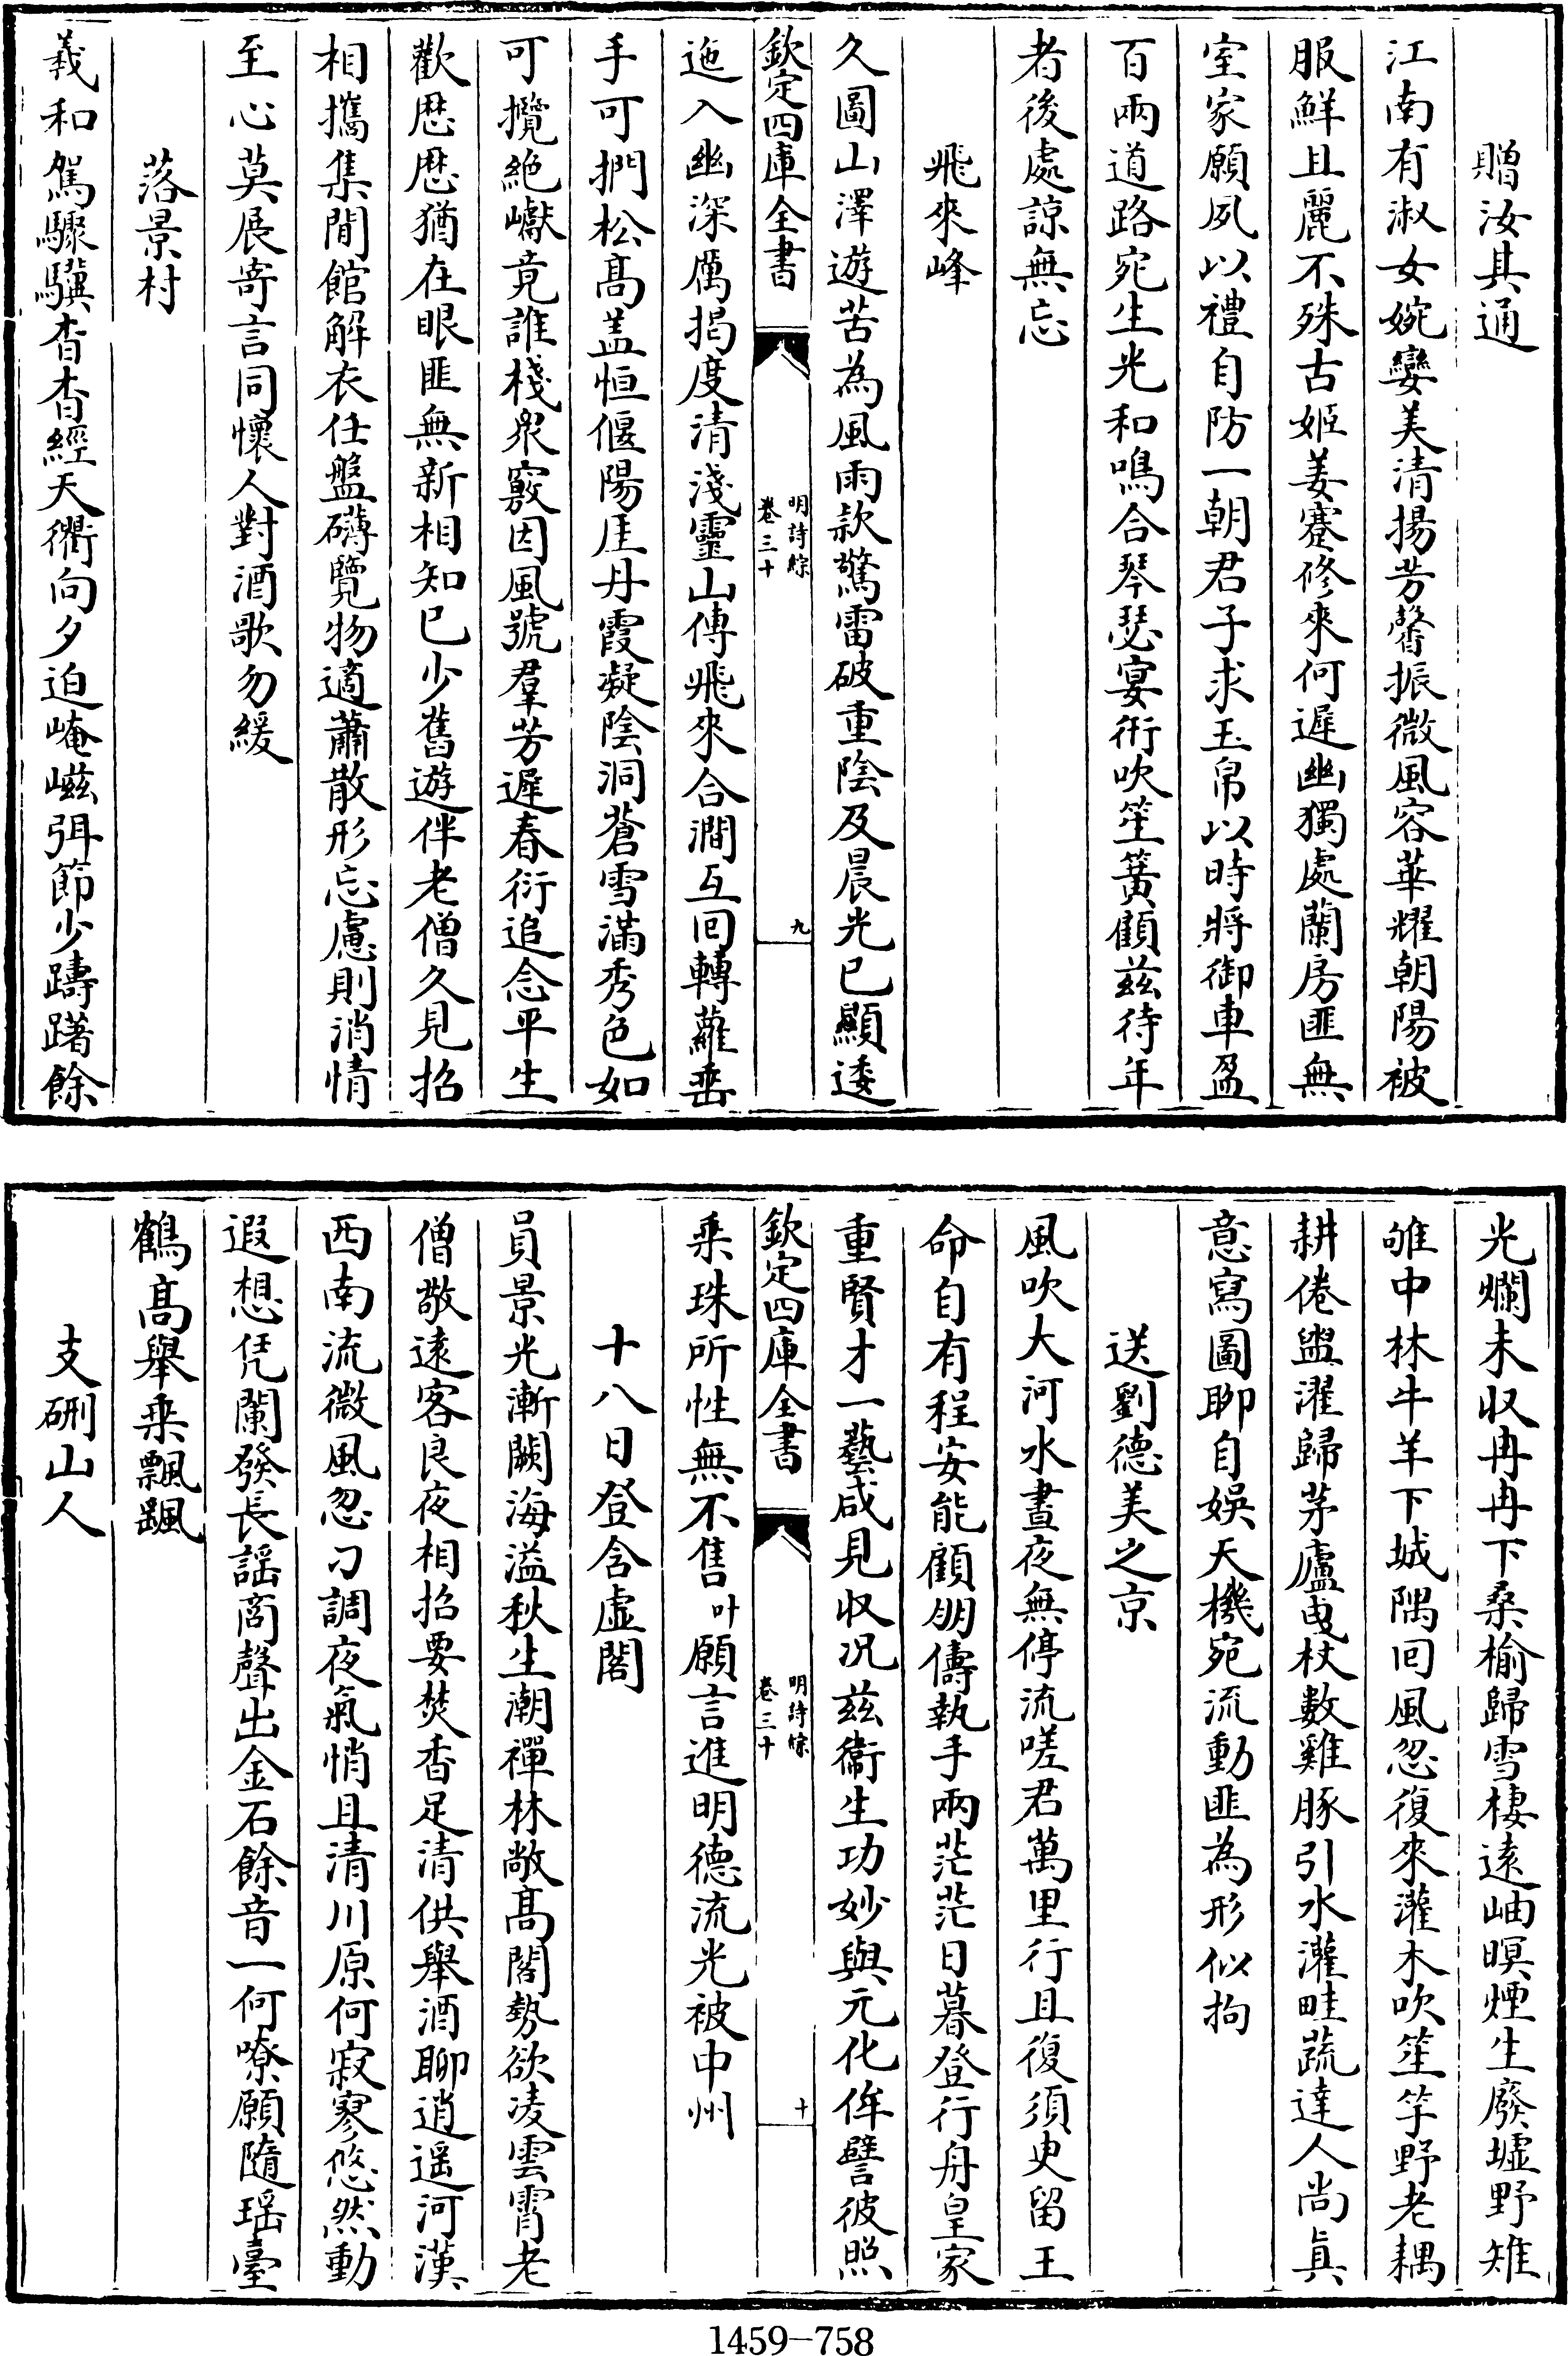 贈汝其通
江南有淑女婉孌美清揚芳馨振微風容華耀朝陽被
服鮮且麗不殊古姬姜蹇修來何遲幽獨處蘭房匪無
室家願夙以禮自防一朝君子求玉帛以時將御車盈
百兩道路宛生光和鳴合琴瑟宴衎吹笙簧顧兹待年
者後處諒無忘
飛來峰
久圖山澤遊苦為風雨款驚雷破重陰及晨光已顯逶
欽定四庫全書
明詩綜
卷三十
九
迤入幽深厲揭度清淺靈山傳飛來合澗互回轉蘿垂
手可捫松髙盖恒偃陽厓丹霞凝陰洞蒼雪滿秀色如
可攬絶巘竟誰棧衆竅因風號羣芳遲春衍追念平生
歡歴歴猶在眼匪無新相知已少舊遊伴老僧久見招
相攜集閒館解衣任盤礴覽物適蕭散形忘慮則消情
至心莫展寄言同懷人對酒歌勿緩
落景村
羲和駕驟驥杳杳經天衢向夕迫崦嵫弭節少躊躇餘
光爛未収冉冉下桑榆歸雪棲遠岫暝煙生廢墟野雉
雊中林牛羊下城隅回風忽復來灌木吹笙竽野老耦
耕倦盥濯歸茅廬曳杖數雞豚引水灌畦蔬達人尚真
意寫圖聊自娛天機宛流動匪為形似拘
送劉德美之京
風吹大河水晝夜無停流嗟君萬里行且復須臾留王
命自有程安能顧朋儔執手兩茫茫日暮登行舟皇家
重賢才一藝咸見収况兹衞生功妙與元化侔譬彼照
欽定四庫全書
明詩綜
卷三十
十
乗珠所性無不售叶願言進明德流光被中州
十八日登含虛閣
員景光漸闕海溢秋生潮禪林敞髙閣勢欲凌雲霄老
僧敬遠客良夜相招要焚香足清供舉酒聊逍遥河漢
西南流微風忽刁調夜氣悄且清川原何寂寥悠然動
遐想凭闌發長謡商聲出金石餘音一何嘹願隨瑶臺
鶴髙舉乗飄颻
支硎山人
1459-758